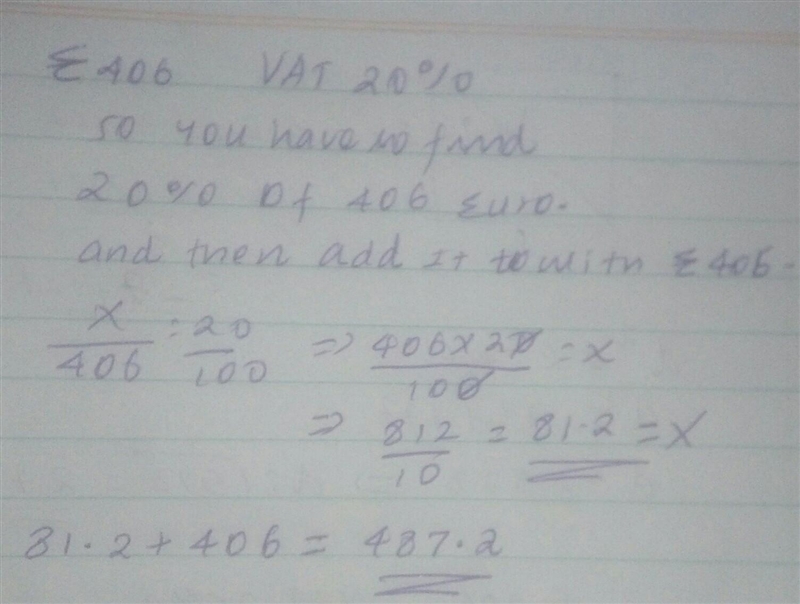 €406 VAT 20%
so you have to find
20% of 406 Euro.
and then add it to with €406.
x/406 = 20/100 => 406x20/100 = x
=> 812/10 = 81.2 = x
81.2 + 406 = 487.2